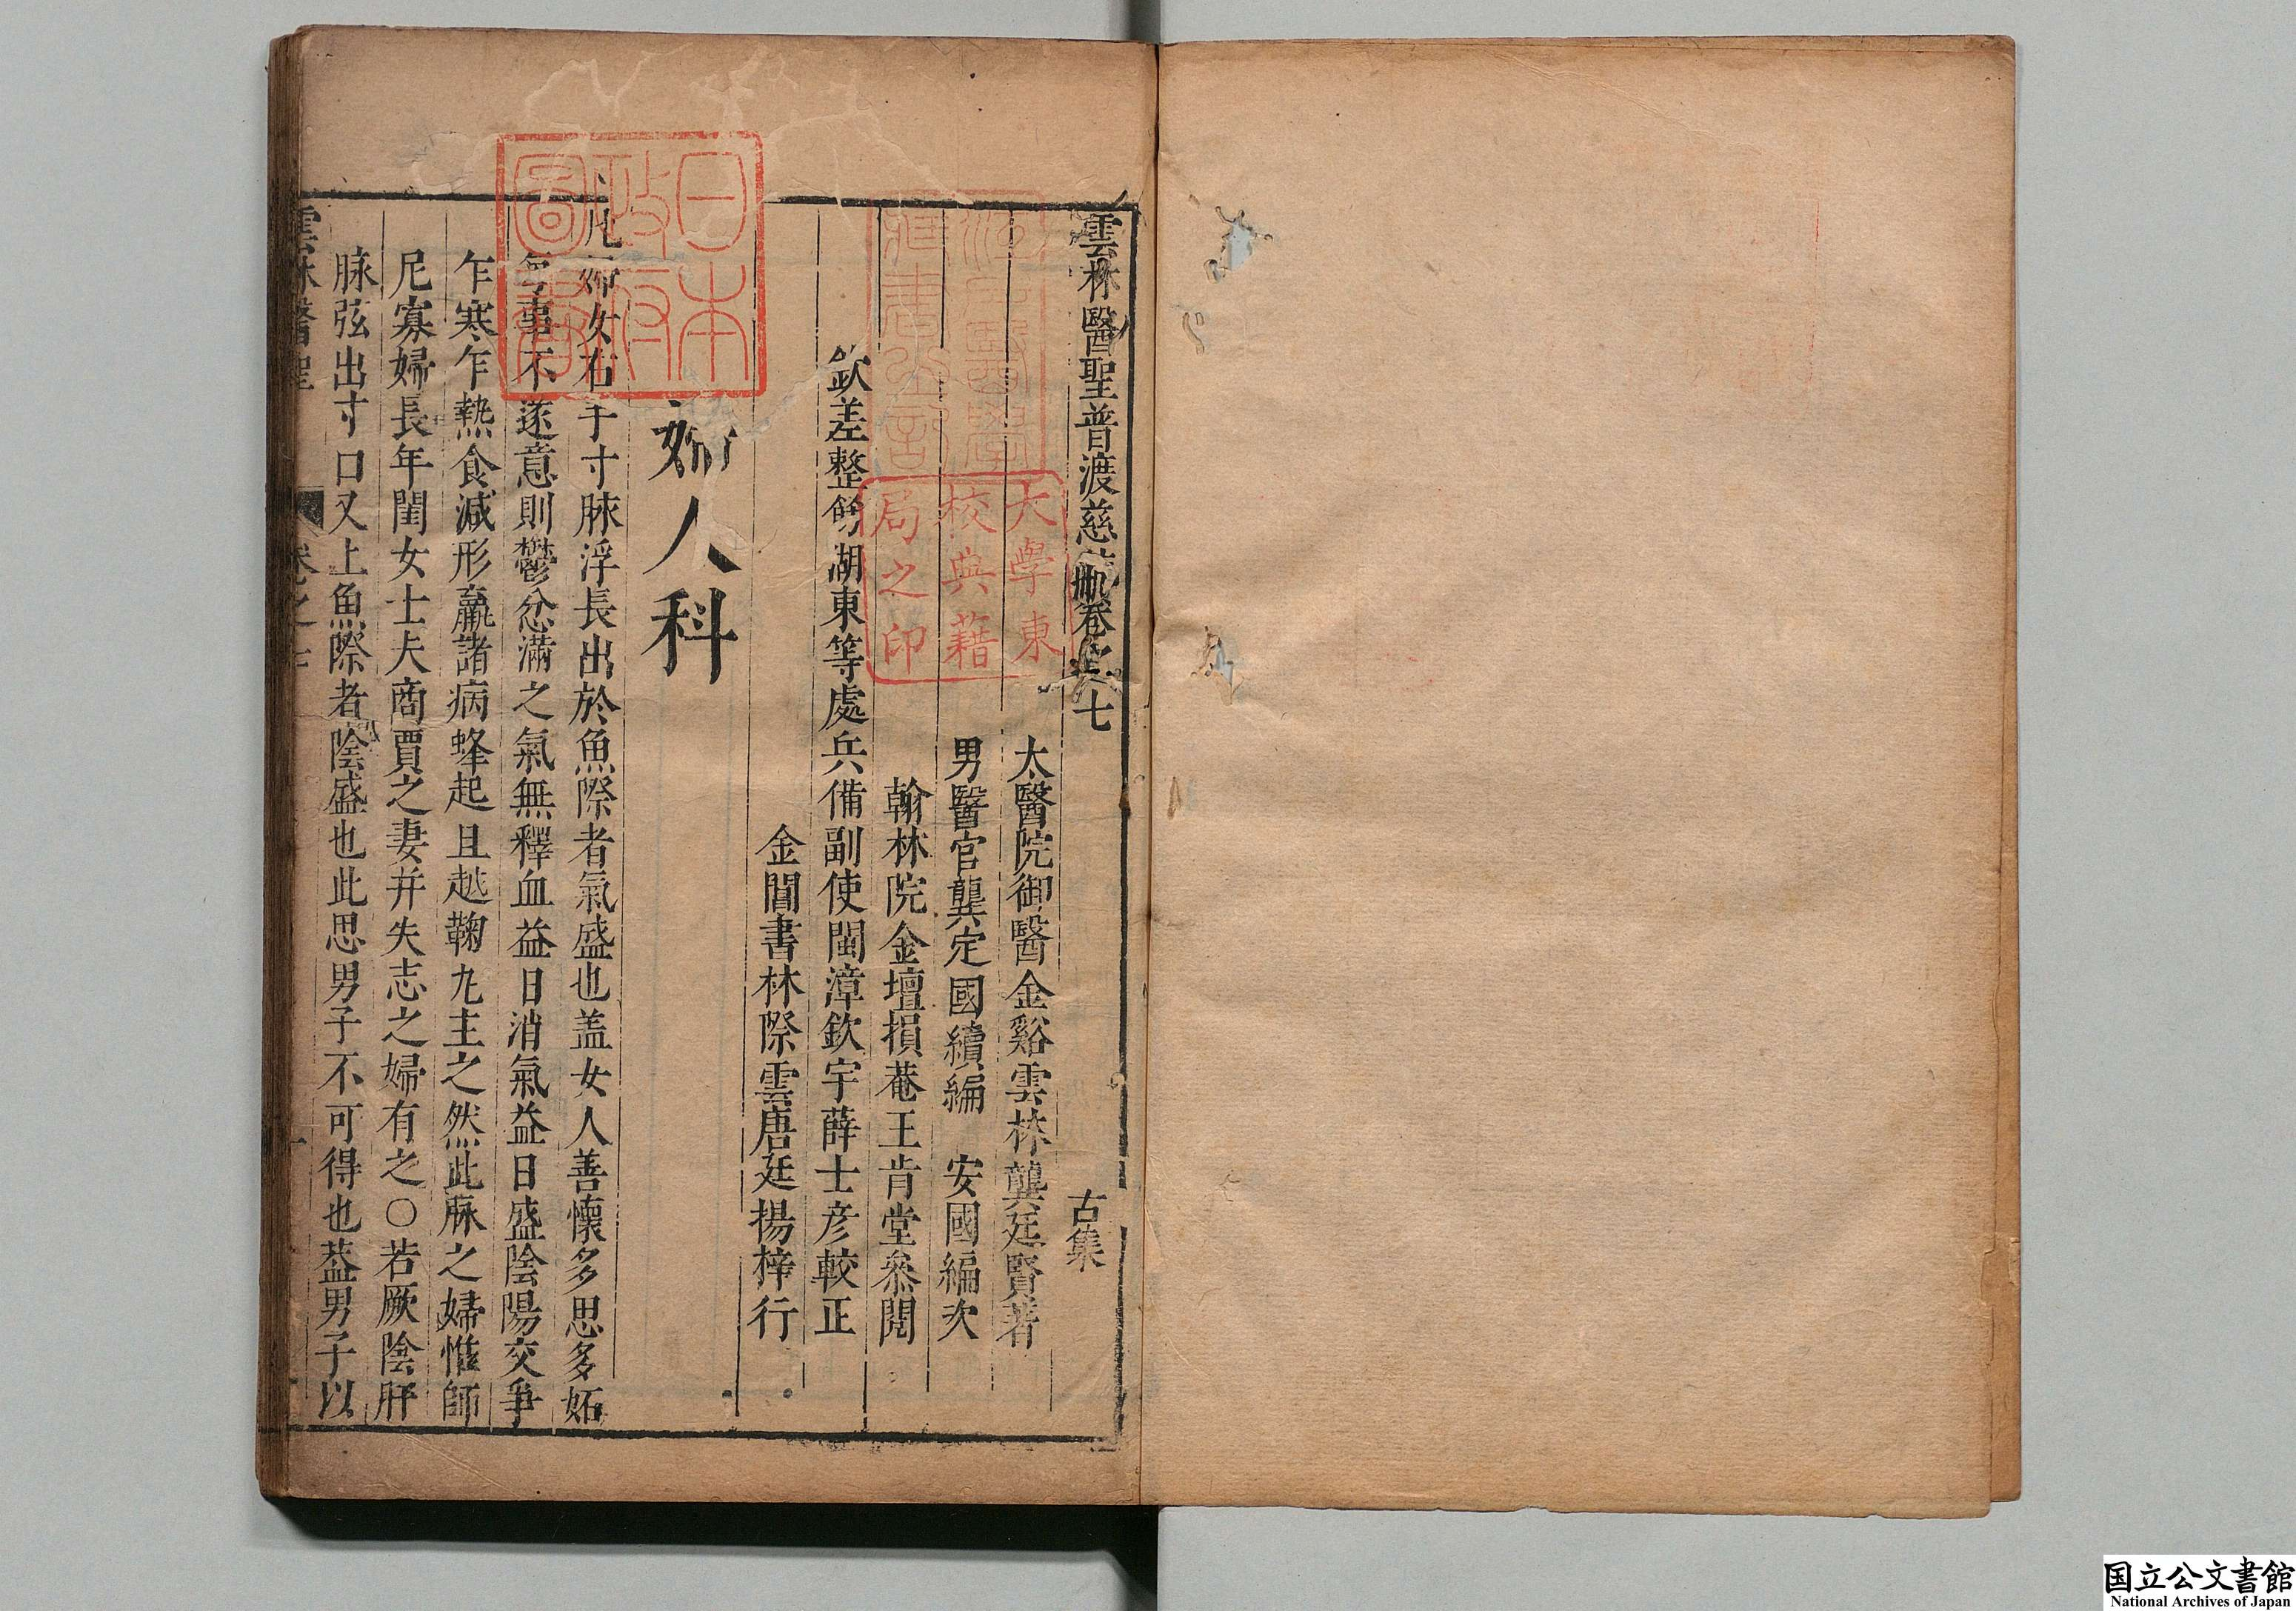 雲林醫聖普渡慈航卷之七
古集
太醫院御醫金谿雲林龔廷賢著
男醫官龔定國續編 安國編次
翰林院金壇損菴王肯堂叅閱
欽差整飭湖東等處兵備副使閩漳欽宇薛士彦較正
金閶書林際雲唐廷揚梓行
婦人科
凡婦女右手寸脉浮長出於魚際者氣盛也盖女人善懷多思多妬
每事不遂意則鬱忿滿之氣無釋血益日消氣益日盛陰陽交爭
乍寒乍熱食減形羸諸病蜂起且越鞠丸主之然此脉之婦惟師
尼寡婦長年閨女士夫商賈之妻并失志之婦有之○若厥陰肝
脉弦出寸口又上魚際者陰盛也此思男子不可得也葢男子以
雲林醫聖 卷之七 一
日本政府圖書
大學東校典藉局之印
国立公文書館
National Archives of Japan